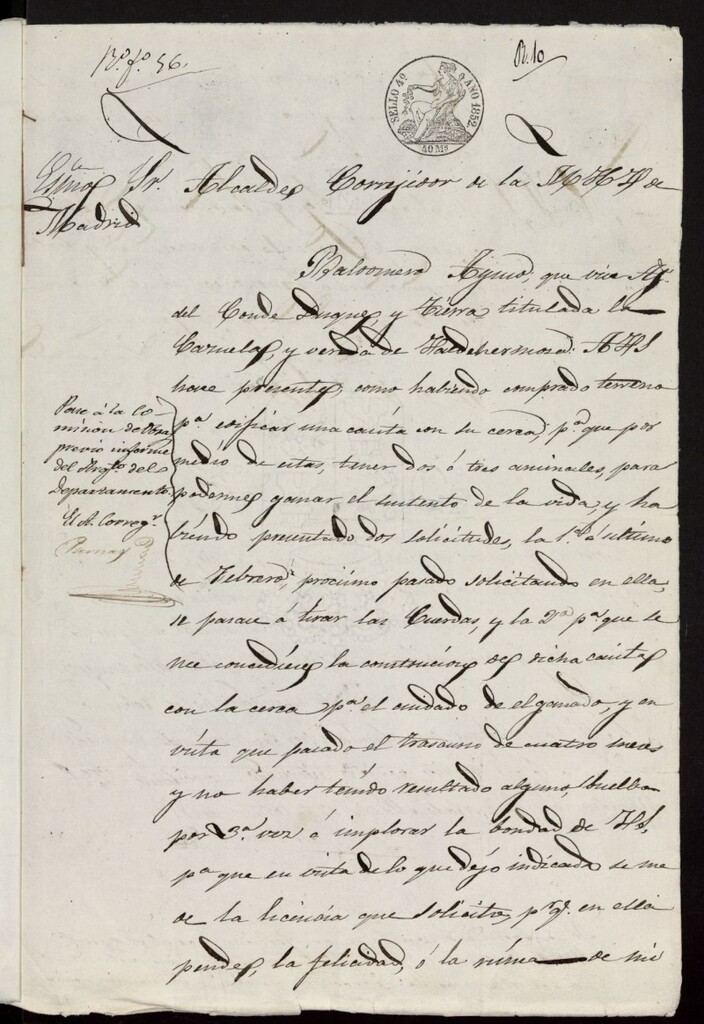 Rº fº 56.
R. 10
SELLO 4º AÑO 1852.
40 Ms
Exmo Sr. Alcalde Corregidor de la M H V de
Madrid
Baldomero Ayuso, que vive
del Conde Duque, y tierra titulada la
Cazuela, y vereda de Valdehermoso. A V S
hace presente, como habiendo comprado terreno
pª edificar una casita con su cerca, pª que por
medio de estas, tener dos ó tres animales, para
podernos ganar el sustento de la vida, y ha
biendo presentado dos solicitudes, la 1ª á último
de Febrero, procsimo pasado solicitando en ella,
se pasase á tirar las Cuerdas, y la 2ª pª que se
me concediese la construcion de dicha casita
con la cerca pª el cuidado de el ganado, y en
vista que pasado el trascurso de cuatro meses
y no haber tenido resultado alguno, buelbo
por 3ª vez á implorar la bondad de V S,
pª que en vista de lo que dejo indicado se me
de la licencia que solicito, pr q. en ella
pende, la felicidad, ó la ruina de mi
Pase á la Co-
mision de Obras
previo informe
del Arqto del
Departamento
El A. Corregr